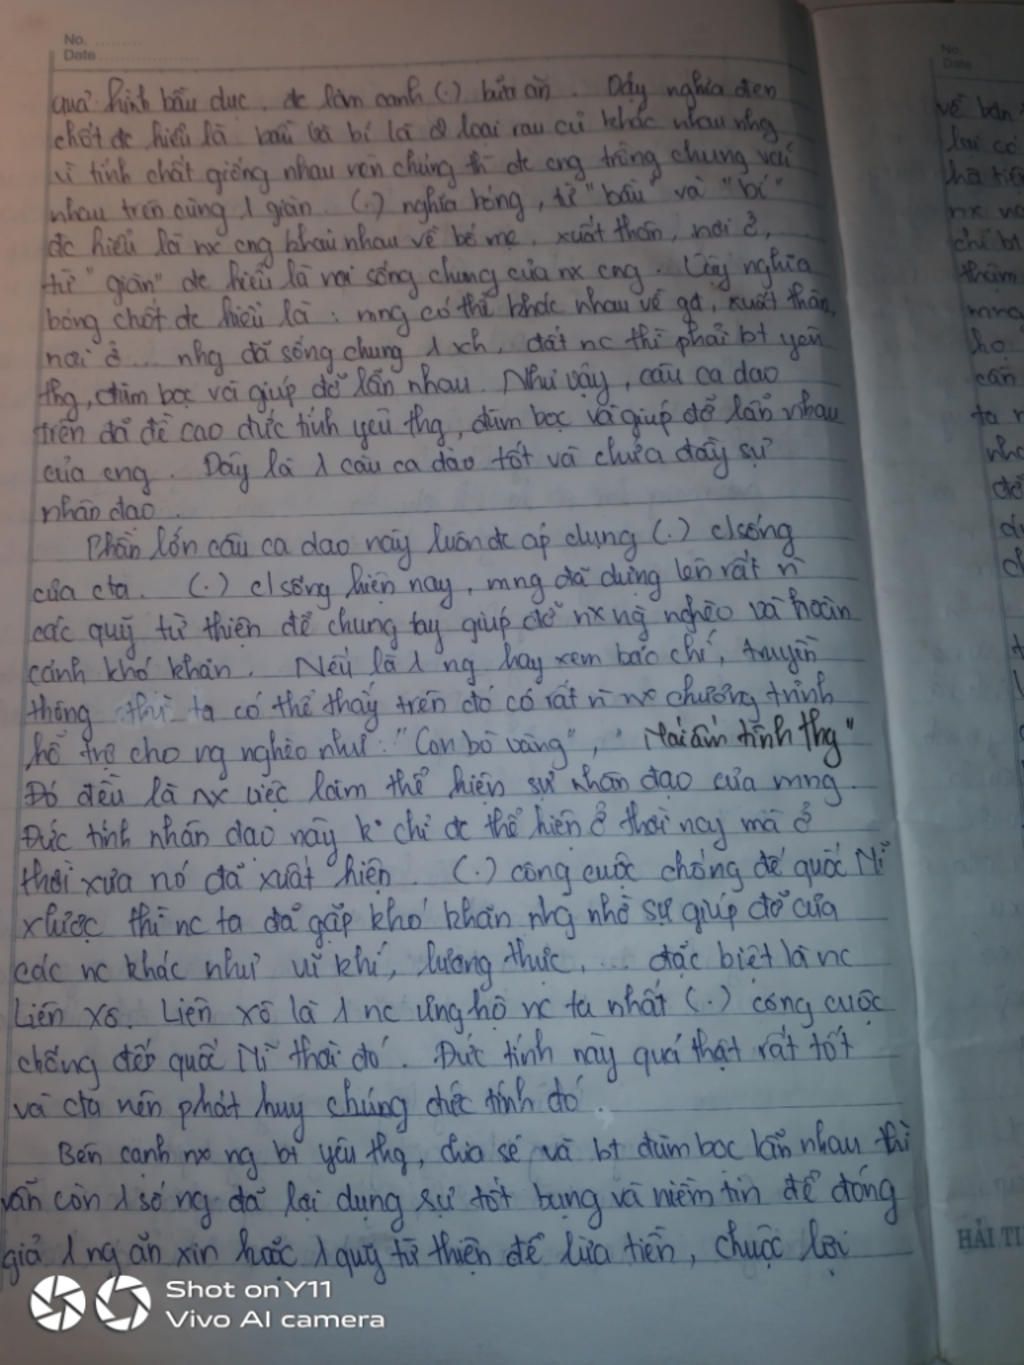 No. ..........
Date ....................
quả hình bầu dục, đc làm canh (.) bữa ăn. Dậy nghĩa đen
chốt đc hiểu là bầu và bí là 2 loại rau củ khác nhau nhg
vì tính chất giống nhau nên chúng đc cng trồng chung với
nhau trên cùng 1 giàn. (.) nghĩa bóng, từ "bầu" và "bí"
đc hiểu là nx cng khai nhau về bố mẹ, xuất thân, nơi ở,
từ "giàn" đc hiểu là nơi sống chung của nx cng. Vậy nghĩa
bóng chốt đc hiểu là : mng có thể khác nhau về gđ, xuất thân,
nơi ở... nhg đã sống chung 1 xh, đất nc thì phải bt yêu
thg, đùm bọc và giúp đỡ lẫn nhau. Như vậy, câu ca dao
trên đã đề cao đức tính yêu thg, đùm bọc và giúp đỡ lẫn nhau
của cng. Đây là 1 câu ca dao tốt và chứa đầy sự
nhân đạo.
Phần lớn câu ca dao này luôn đc áp dụng (.) c/sống
của cta. (.) c/sống hiện nay, mng đã dựng lên rất n
các quỹ từ thiện để chung tay giúp đỡ nx ng nghèo và hoàn
cảnh khó khăn. Nếu là 1 ng hay xem báo chí, truyền
thông thì ta có thể thấy trên đó có rất n nx chương trình
hỗ trợ cho ng nghèo như: "Con bò vàng", "Mái ấm tình thg"
Đó đều là nx việc làm thể hiện sự nhân đạo của mng.
Đức tính nhân đạo này k chỉ đc thể hiện ở thời nay mà ở
thời xưa nó đã xuất hiện. (.) công cuộc chống đế quốc Mĩ
xlược thì nc ta đã gặp khó khăn nhg nhờ sự giúp đỡ của
các nc khác như vũ khí, lương thực, ... đặc biệt là nc
Liên Xô. Liên xô là 1 nc ủng hộ nc ta nhất (.) công cuộc
chống đế quốc Mĩ thời đó. Đức tính này quả thật rất tốt
và cta nên phát huy chúng đức tính đó.
Bên cạnh nx ng bt yêu thg, chia sẻ và bt đùm bọc lẫn nhau thì
vẫn còn 1 số ng đã lợi dụng sự tốt bụng và niềm tin để đóng
giả 1 ng ăn xin hoặc 1 quỹ từ thiện để lừa tiền, chuộc lợi
No.
Date
về bản
lại có
nx
ta
HẢI TI
Shot on Y11
Vivo AI camera